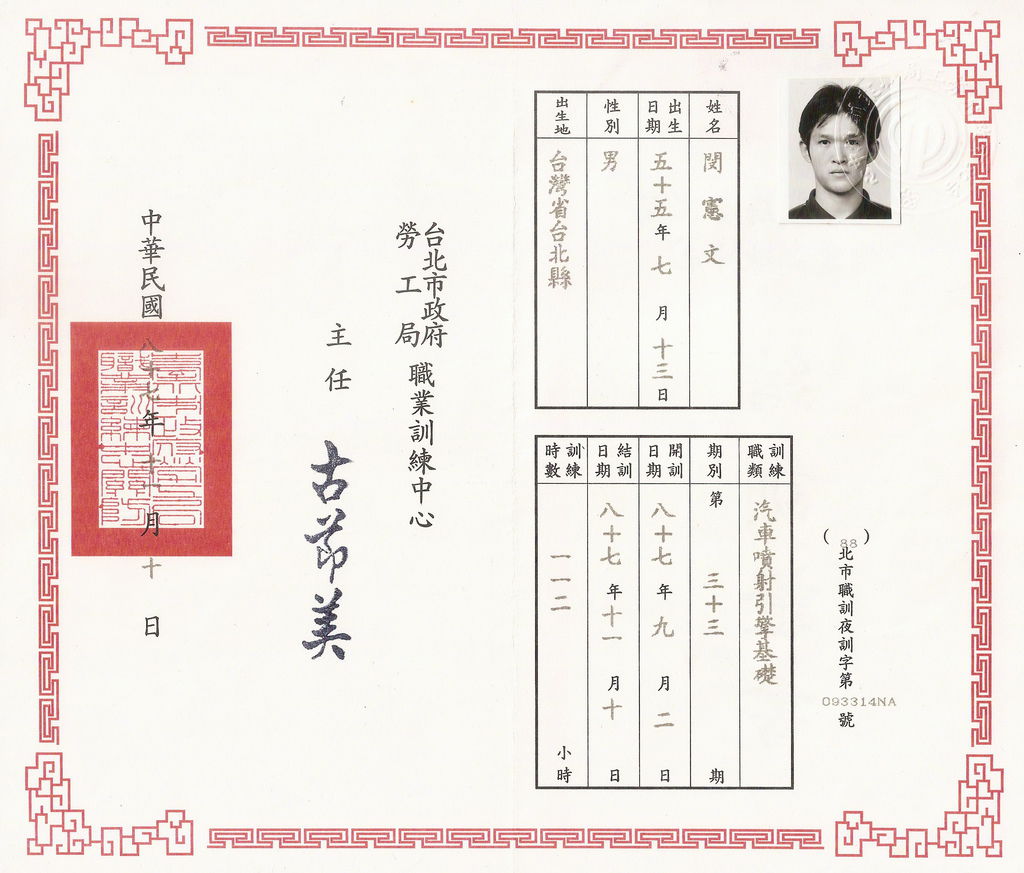 (88)北市職訓夜訓字第093314NA號
姓名 閔憲文
出生日期 五十五年七月十三日
性別 男
出生地 台灣省台北縣
訓練職類 汽車噴射引擎基礎
期別 第三十三期
開訓日期 八十七年九月二日
結訓日期 八十七年十一月十日
訓練時數 一一二小時
台北市政府勞工局職業訓練中心
主任 古苓美
中華民國八十七年十一月十日